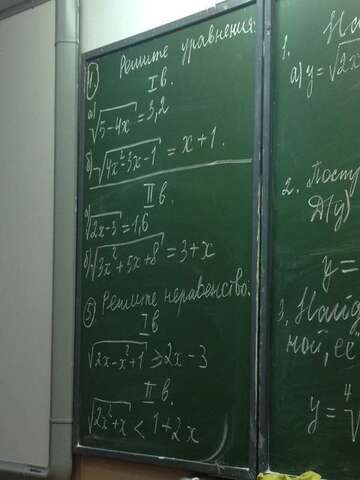 4. Решите уравнения:
I в.
а) √(5-4x) = 3,2
б) √(4x²-3x-1) = x+1.
II в.
а) √(2x-3) = 1,6
б) √(3x²+5x+8) = 3+x
5. Решите неравенство:
I в
√(2x-x²+1) ≥ 2x-3
II в.
√(2x²+x) < 1+2x
1. На
а) y = √2x
2. Пост
D(y)
y =
3. Найд
ной, её
y = ⁴√